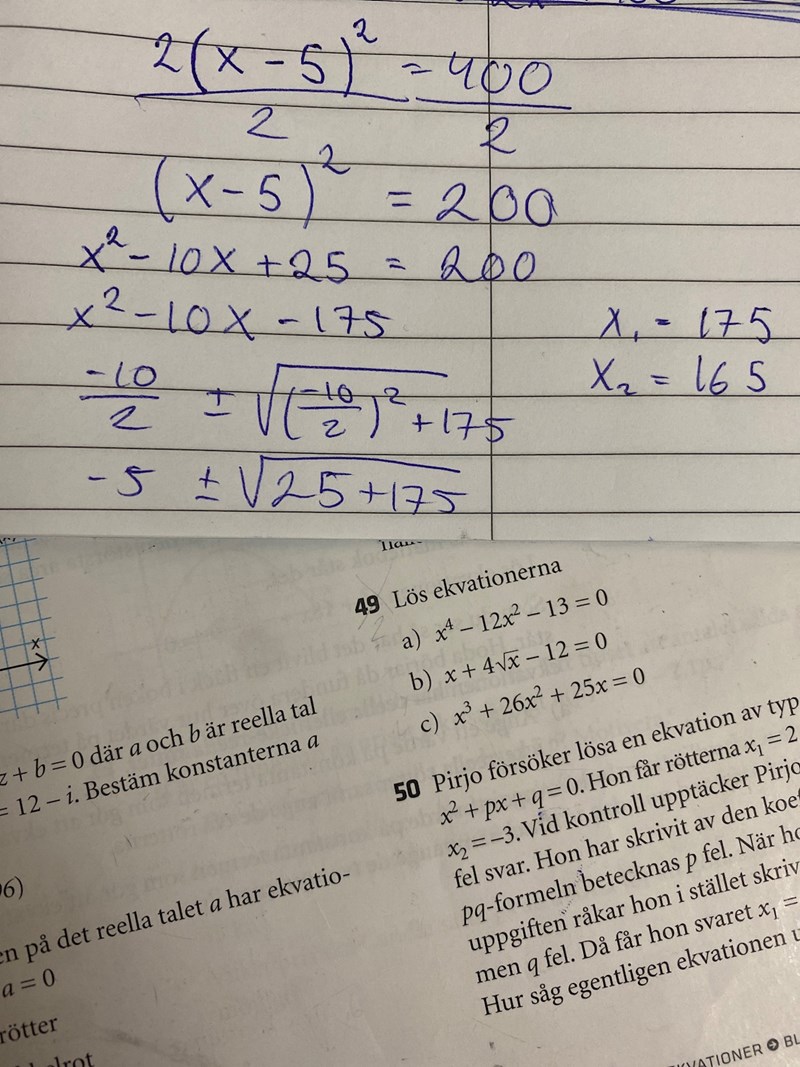 2(x-5)² = 400
2 2
(x-5)² = 200
x² - 10x + 25 = 200
x² - 10x - 175
-10/2 ± √((-10/2)² + 175
-5 ± √25+175
x₁ = 175
x₂ = 165
x
z + b = 0 där a och b är reella tal
= 12 – i. Bestäm konstanterna a
en på det reella talet a har ekvatio-
a = 0
rötter
49 Lös ekvationerna
a) x⁴ – 12x² – 13 = 0
b) x + 4√x – 12 = 0
c) x³ + 26x² + 25x = 0
50 Pirjo försöker lösa en ekvation av typ
x² + px + q = 0. Hon får rötterna x₁ = 2
x₂ = –3. Vid kontroll upptäcker Pirjo
fel svar. Hon har skrivit av den koef
pq-formeln betecknas p fel. När ho
uppgiften råkar hon i stället skriv
men q fel. Då får hon svaret x₁ =
Hur såg egentligen ekvationen u
KVATIONER BL